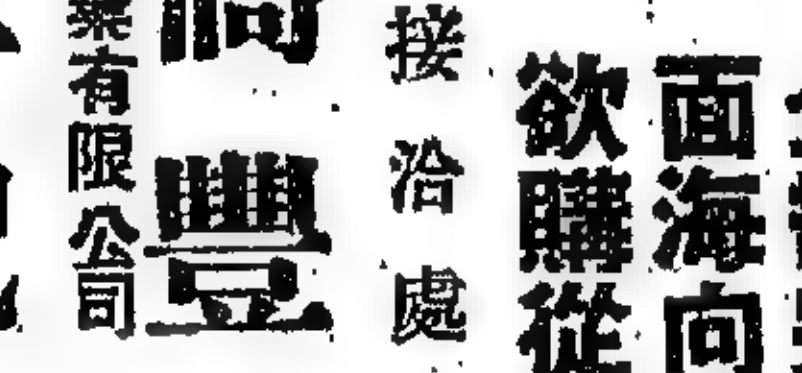 面海向
欲購從
接洽處
豐
業有限公司